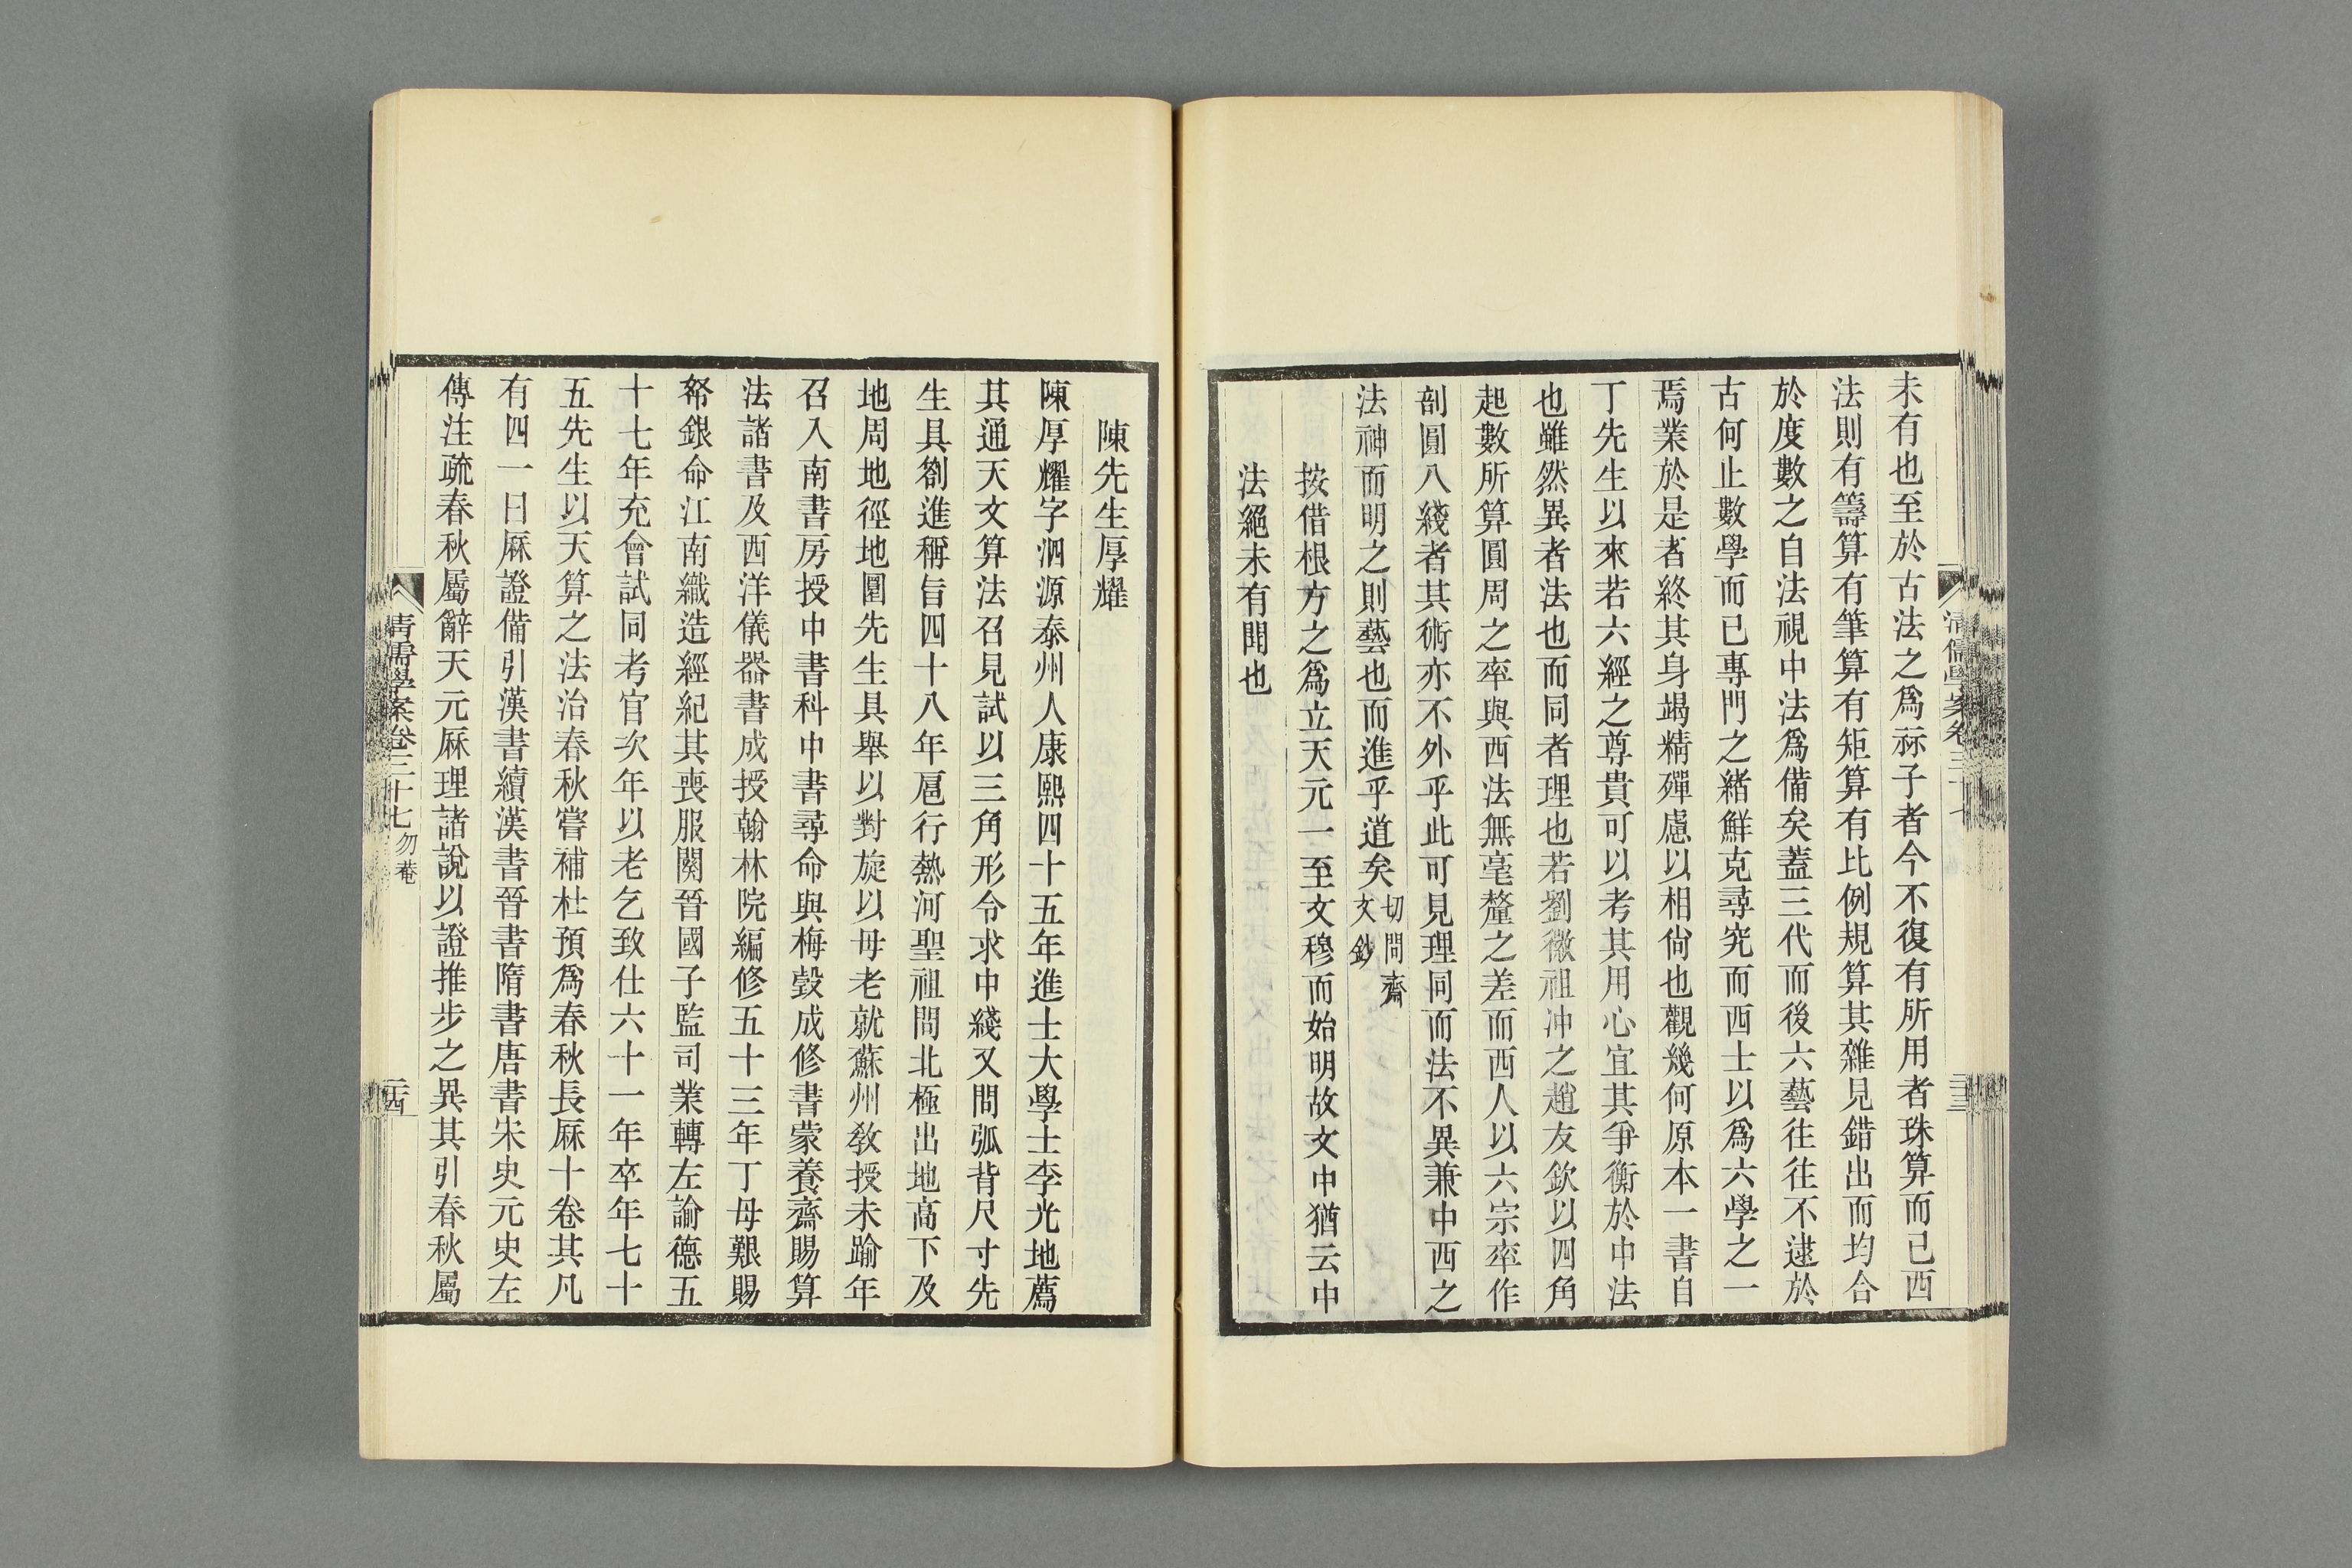 未有也至於古法之爲祘子者今不復有所用者珠算而已西
法則有籌算有筆算有矩算有比例規算其雜見錯出而均合
於度數之自法視中法爲備矣蓋三代而後六藝往往不逮於
古何止數學而已專門之緒鮮克尋究而西士以爲六學之一
焉業於是者終其身竭精殫慮以相尙也觀幾何原本一書自
丁先生以來若六經之尊貴可以考其用心宜其爭衡於中法
也雖然異者法也而同者理也若劉徽祖冲之趙友欽以四角
起數所算圓周之率與西法無毫釐之差而西人以六宗率作
剖圓八綫者其術亦不外乎此可見理同而法不異兼中西之
法神而明之則藝也而進乎道矣切問齋文鈔
按借根方之爲立天元一至文穆而始明故文中猶云中
法絕未有聞也
清儒學案卷三十七
二十三
陳先生厚耀
陳厚耀字泗源泰州人康熙四十五年進士大學士李光地薦
其通天文算法召見試以三角形令求中綫又問弧背尺寸先
生具劄進稱旨四十八年扈行熱河聖祖問北極出地高下及
地周地徑地圍先生具舉以對旋以母老就蘇州敎授未踰年
召入南書房授中書科中書尋命與梅瑴成修書蒙養齋賜算
法諸書及西洋儀器書成授翰林院編修五十三年丁母艱賜
帑銀命江南織造經紀其喪服闋晉國子監司業轉左諭德五
十七年充會試同考官次年以老乞致仕六十一年卒年七十
五先生以天算之法治春秋嘗補杜預爲春秋長厤十卷其凡
有四一曰厤證備引漢書續漢書晉書隋書唐書宋史元史左
傳注疏春秋屬辭天元厤理諸說以證推步之異其引春秋屬
清儒學案卷三十七 勿菴
二十四